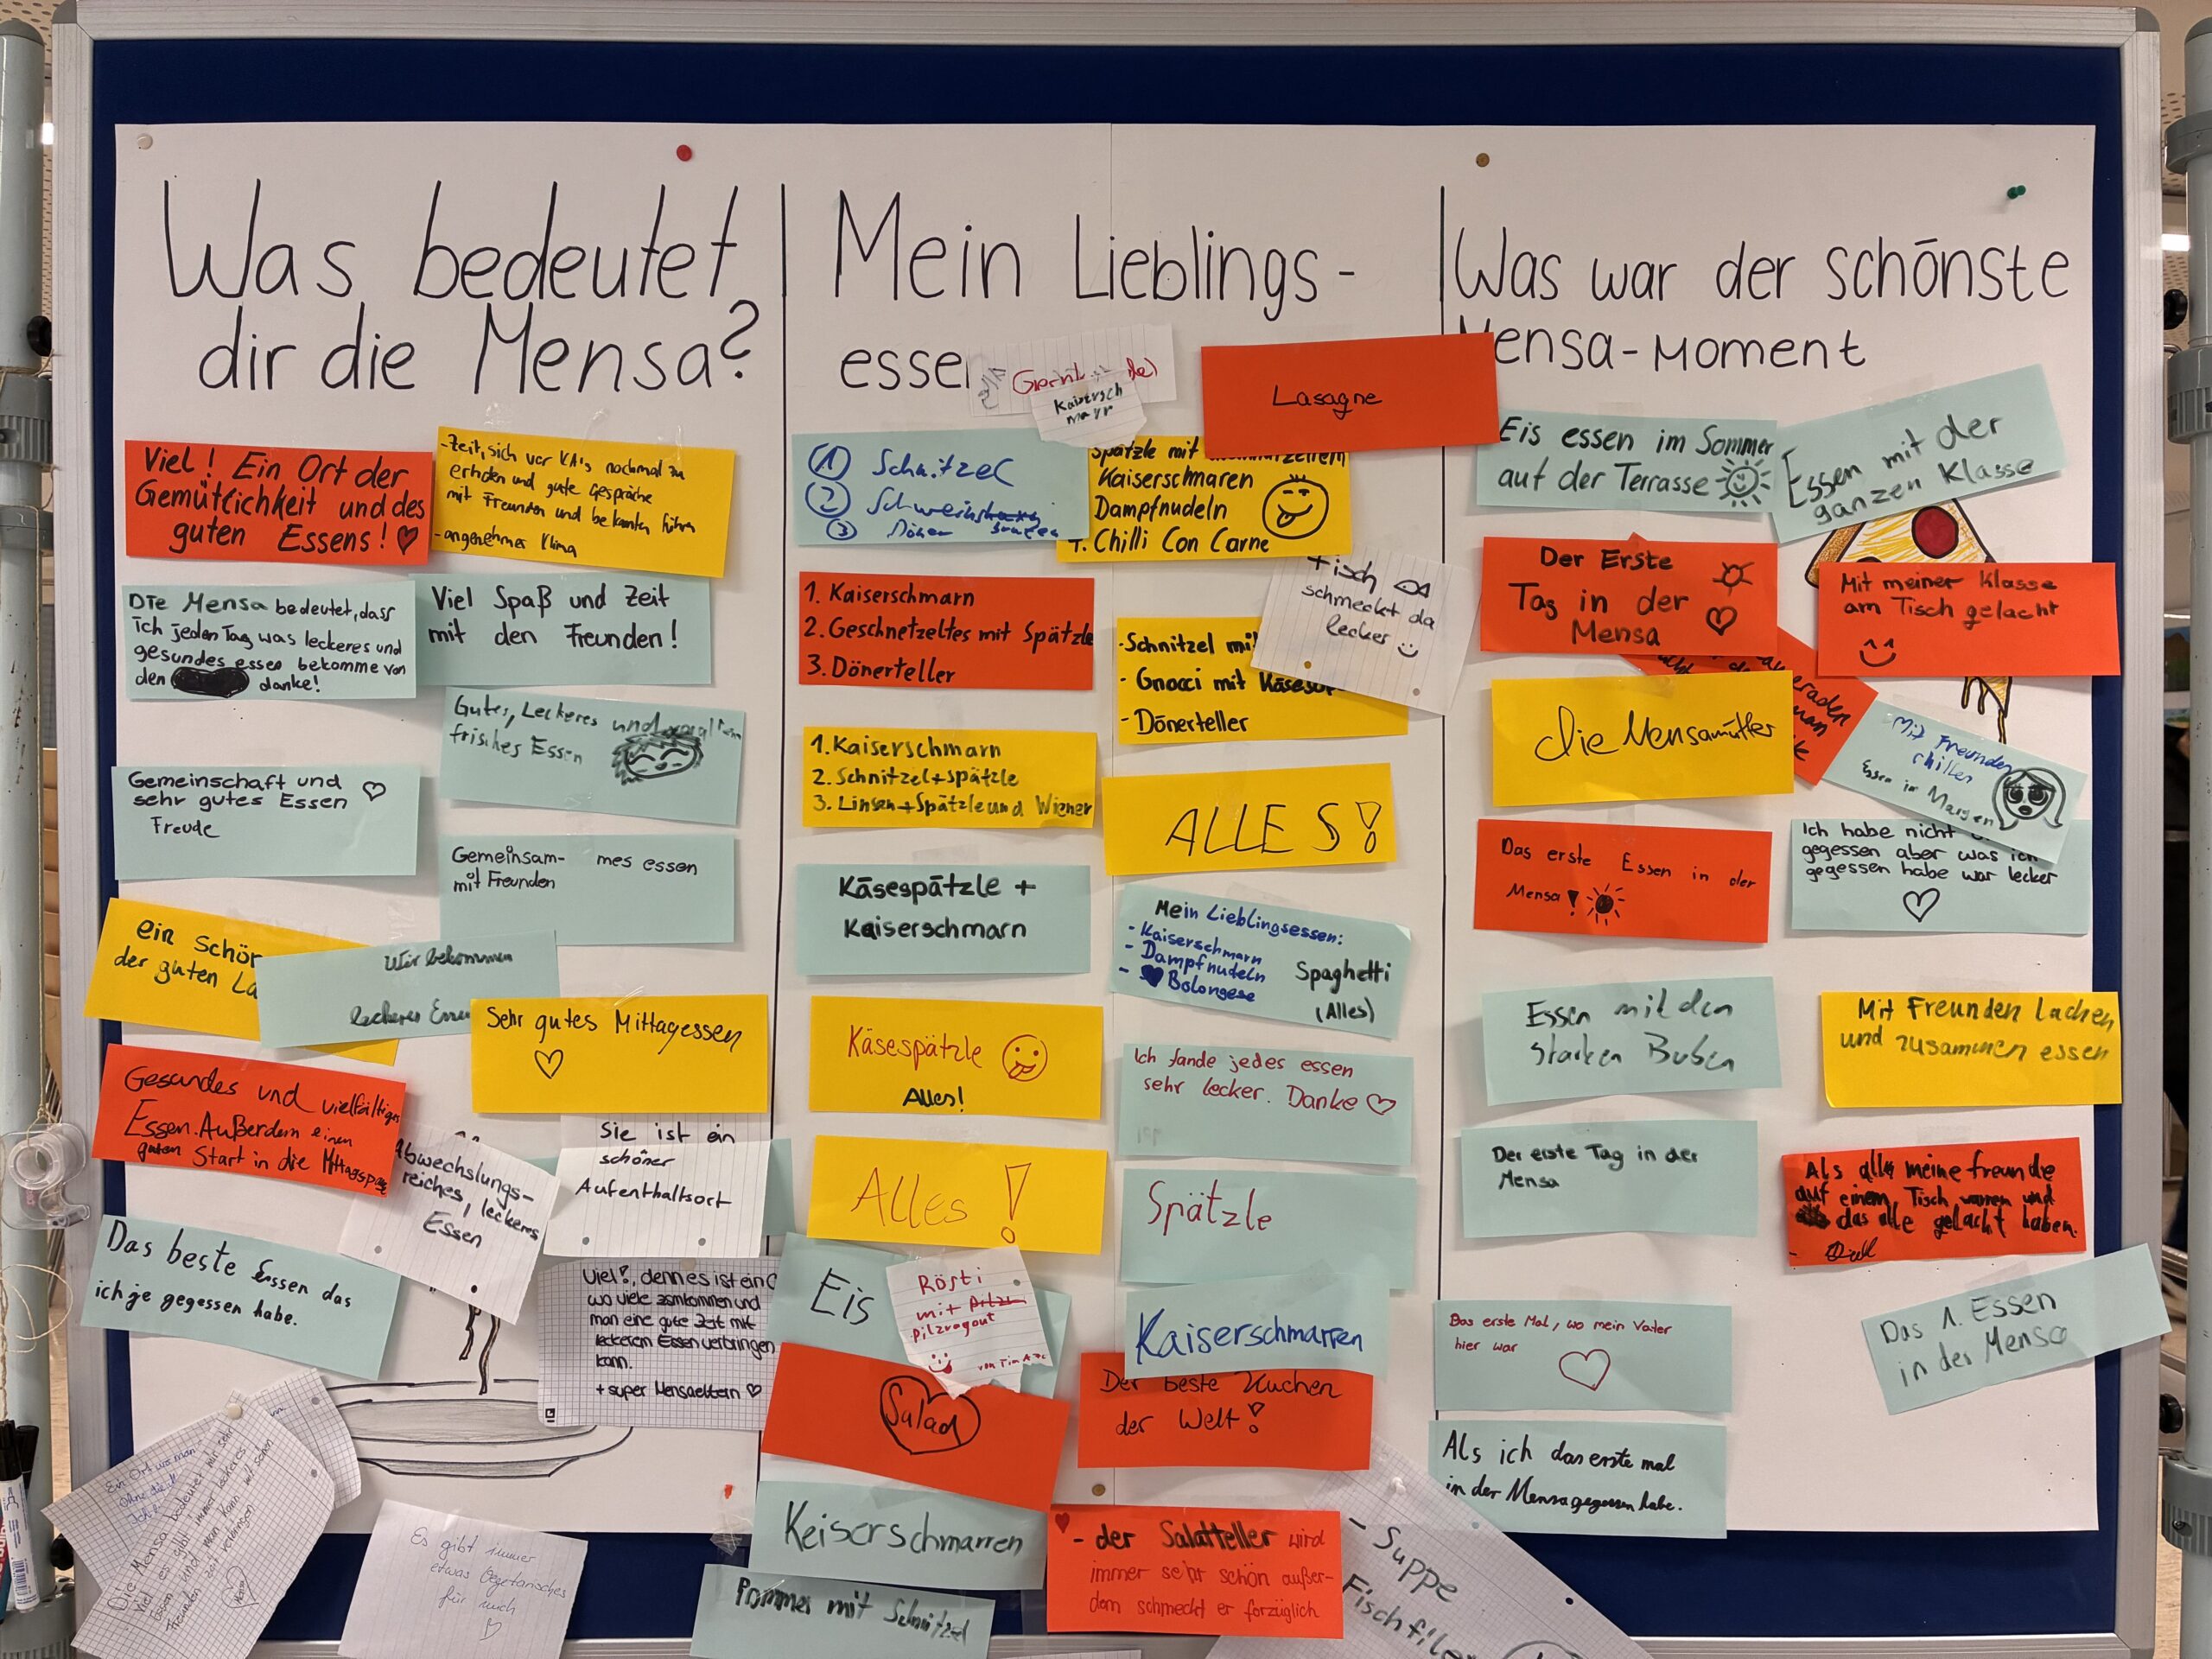 Was bedeutet
dir die Mensa?
Viel! Ein Ort der
Gemütlichkeit und des
guten Essens!
-Zeit, sich vor KA's nochmal zu
erholen und gute Gespräche
mit Freunden und bekannten führen
-angenehmes Klima
Die Mensa bedeutet, dass
ich jeden Tag was leckeres und
gesundes essen bekomme von
den danke!
Viel Spaß und Zeit
mit den Freunden!
Gutes, Leckeres und
frisches Essen
Gemeinschaft und
sehr gutes Essen
Freude
Gemeinsam- mes essen
mit Freunden
ein schön
der guten La
Wir bekommen
leckeres Essen
Sehr gutes Mittagessen
Gesundes und vielfältiges
Essen. Außerdem einen
guten Start in die Mittagspause
abwechslungs-
reiches, leckeres
Essen
Sie ist ein
schöner
Aufenthaltsort
Das beste Essen das
ich je gegessen habe.
Viel!, denn es ist ein O
wo viele zamkommen und
man eine gute Zeit mit
leckerem Essen verbringen
kann.
+ super Mensaeltern
Ein Ort wo man
Die Mensa bedeutet mir sehr
viel es gibt immer leckeres
Essen und man kann mit seinen
Freunden zeit verbringen
Es gibt immer
etwas Vegetarisches
für mich
Mein Lieblings-
esse
Kaisersch
marr
Lasagne
① Schnitzel
② Schweins
③ Döner
Spätzle mit
Kaiserschmaren
Dampfnudeln
4. Chilli Con Carne
1. Kaiserschmarn
2. Geschnetzeltes mit Spätzle
3. Dönerteller
Fisch
schmeckt da
lecker
-Schnitzel mi
- Gnocci mit Käseso
- Dönerteller
1. Kaiserschmarn
2. Schnitzel+spätzle
3. Linsen+Spätzle und Wiener
ALLES!
Käsespätzle +
Kaiserschmarn
Mein Lieblingsessen:
- Kaiserschmarn
- Dampfnudeln
- Bolongese
Spaghetti
(Alles)
Käsespätzle
Alles!
Ich fande jedes essen
sehr lecker. Danke
Alles!
Spätzle
Eis
Rösti
mit Pilz
pilzragout
Kaiserschmarren
Salad
Der beste Kuchen
der Welt!
Keiserschmarren
- der Salatteller wird
immer sehr schön außer-
dem schmeckt er forzüglich
Pommes mit Schnitzel
- Suppe
Fischfile
Was war der schönste
ensa-Moment
Eis essen im Sommer
auf der Terrasse
Essen mit der
ganzen Klasse
Der Erste
Tag in der
Mensa
Mit meiner Klasse
am Tisch gelacht
die Mensamütter
Mit Freunden
chillen
Essen im Magen
Das erste Essen in der
Mensa!
Ich habe nicht
gegessen aber was ich
gegessen habe war lecker
Essen mit den
starken Buben
Mit Freunden Lachen
und zusammen essen
Der erste Tag in der
Mensa
Als alle meine freunde
auf einem Tisch warren und
das alle gelacht haben.
Das erste Mal, wo mein Vater
hier war
Das 1. Essen
in der Mensa
Als ich das erste mal
in der Mensa gegessen habe.